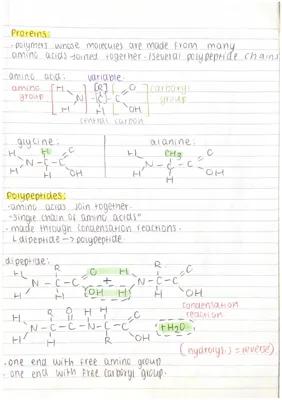 Proteins:
- polymers whose molecules are made from many
amino acids joined together. (several polypeptide chains
amino acid:
variable.
amino
group
H
N
H
[R]
C
H
C
O
OH
carboxyl
group
central carbon
glycine:
alanine:
H
H
N
H
C
H
C
O
OH
H
H
N
CH3
C
H
C
O
OH
Polypeptides:
- amino acids join together.
- "single chain of amino acids"
- made through condensation reactions.
↳ dipeptide → polypeptide
dipeptide:
H
H
N
R
C
H
C
O
OH
+
H
H
N
R
C
H
C
O
OH
condensation
reaction
H
H
N
R
C
H
O
C
H
N
H
C
R
C
O
OH
+H2O
(hydrolysis = reverse)
- one end with free amino group
- one end with free carboxyl group.